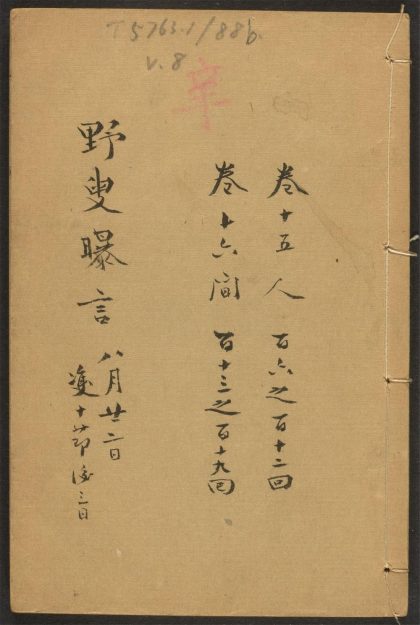 T 5763.1/886
V. 8
辛
卷十五人 百六之百十二回
卷十六間 百十三之百十九回
野叟曝言
八月廿二日
雙十節後三日